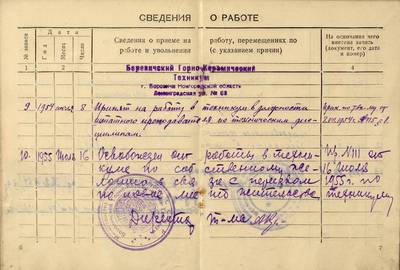 СВЕДЕНИЯ О РАБОТЕ
№ записи
Дата
Год
Месяц
Число
Сведения о приеме на работу, перемещениях по
работе и увольнении (с указанием причин)
На основании чего
внесена запись
(документ, его дата
и номер)
1 2 3 4
Боровичский Горно-Керамический
Техникум
г. Боровичи Новгородской область
Ленинградская ул. № 63
9. 1954 8 Принят на работу в техникум в должности
штатного преподавателя по техническим дис-
циплинам.
10. 1955 Июль 16 Освобожден от работы в техни-
куме по собственному же-
ланию в связи с переездом
на новое место жительства
Пр. N111 от
16 июля
1955 г. по
техникуму
Директор т-ма
6
7